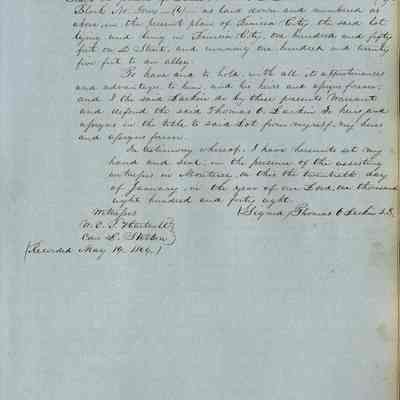 Block No. Four (4) as laid down and numbered as
above, in the present plan of Benicia City, the said lot
lying and being in Benicia City, one hundred and fifty
feet on D Street, and running one hundred and twenty
five feet to an alley.
To have and to hold, with all its appurtenances
and advantages to him, and his heirs and assigns forever;
and I the said Larkin do by these presents Warrant
and defend the said Thomas O. Larkin Jr heirs and
assigns in the title to said Lot from myself, my heirs
and assigns forever.
In testimony whereof, I have hereunto set my
hand and seal, in the presence of the assisting
witnesses in Monterey, on this the twentieth day
of January, in the year of our Lord, one thousand
eight hundred and forty eight.
Witnesses (Signed) Thomas O Larkin L.S.
W. E. P. Hartnell
(Recorded May 19.